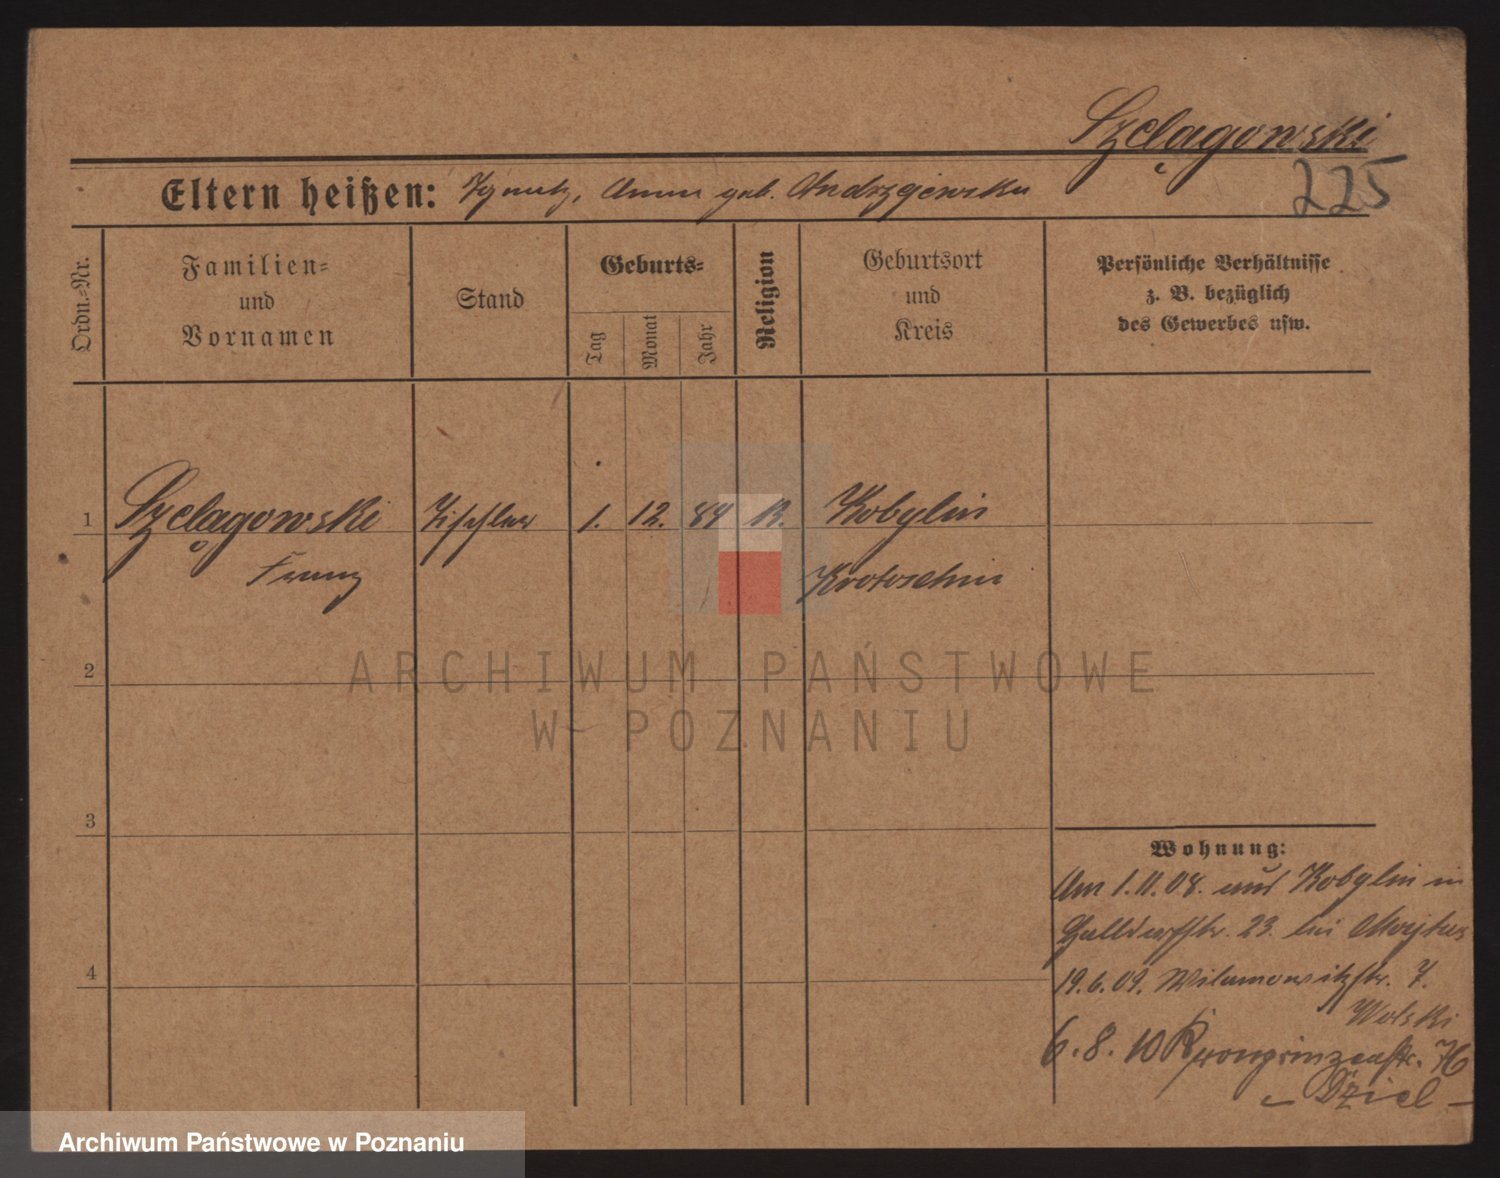 Szelągowski
225
Eltern heißen: Ignatz, Anna geb. Andrzejewska
Ordn.-Nr.
Familien-
und
Vornamen
Stand
Geburts-
Tag
Monat
Jahr
Religion
Geburtsort
und
Kreis
Persönliche Verhältnisse
z. B. bezüglich
des Gewerbes usw.
1
Szelągowski
Tischler
1. 12. 84
K.
Kobylin
Franz
Krotoschin
ARCHIWUM PAŃSTWOWE
W POZNANIU
2
3
4
Wohnung:
Am 1.11.08. aus Kobylin in
23. bei
19.6.09. Wilamowitzstr. 7.
Wolski
6.8.10 Kronprinzenstr. 76
– Dziel –
Archiwum Państwowe w Poznaniu